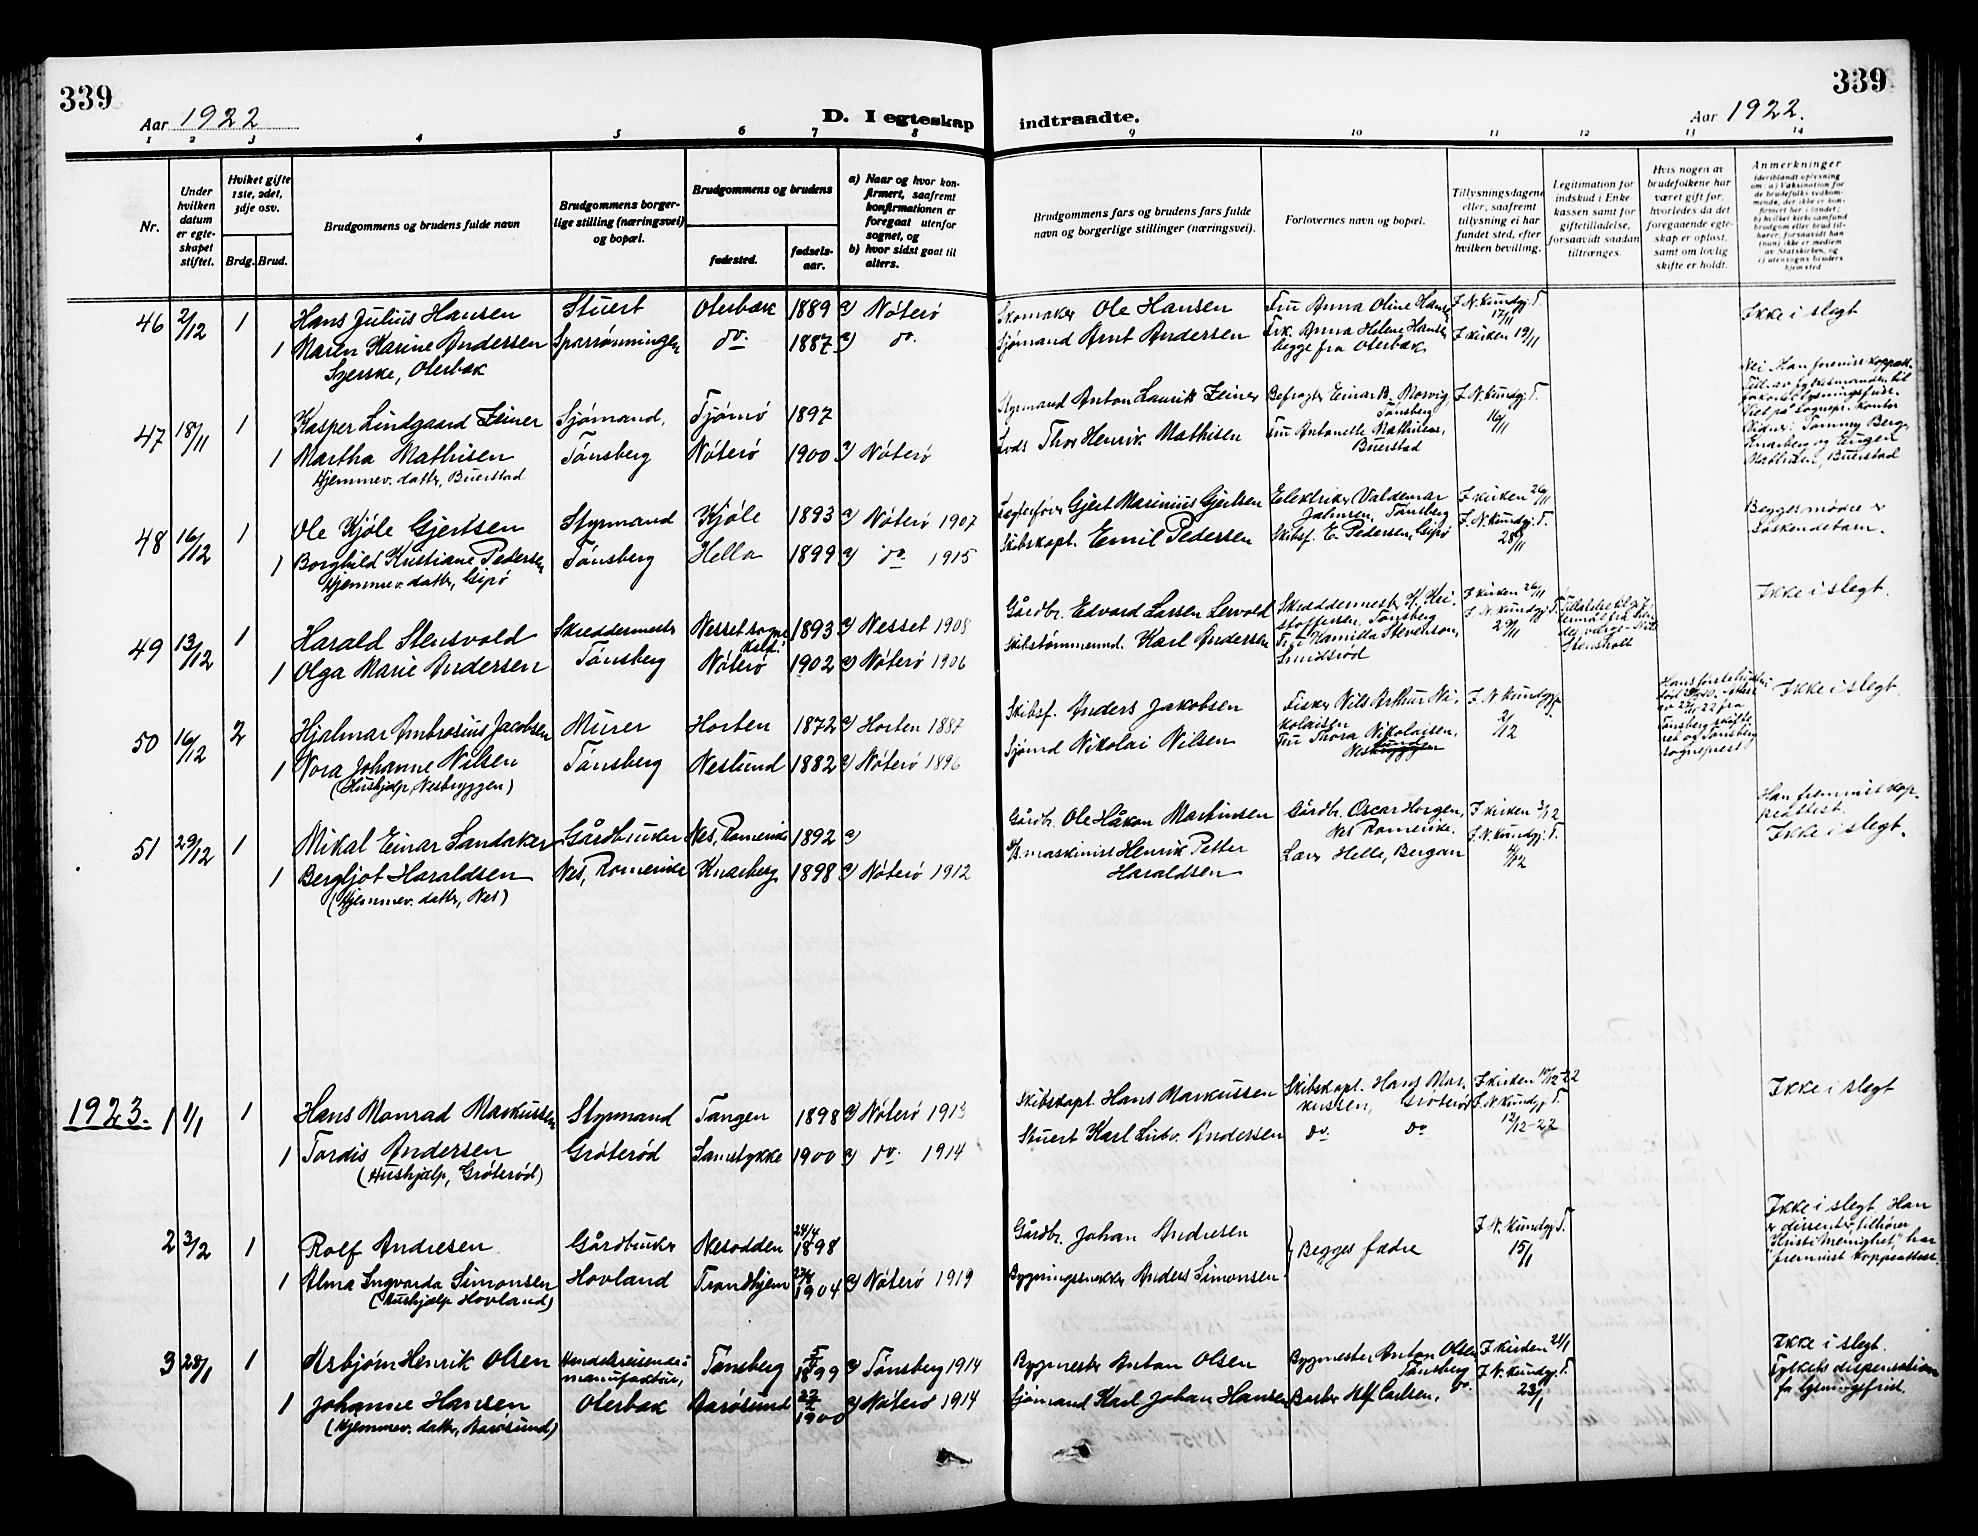 339
339
Aar 1922
D. I egteskap indtraadte.
Aar 1922.
1 2 3 4 5 6 7 8 9 10 11 12 13 14
Nr.
Under hvilken datum er egteskapet stiftet.
Hvilket gifte 1ste, 2det, 3dje osv.
Brdg. Brud.
Brudgommens og brudens fulde navn
Brudgommens borgerlige stilling (næringsvei) og bopæl.
Brudgommens og brudens
fødested.
fødselsaar.
a) Naar og hvor konfirmert, saafremt konfirmationen er foregaat utenfor sognet, og
b) hvor sidst gaat til alters.
Brudgommens fars og brudens fars fulde navn og borgerlige stillinger (næringsvei).
Forlovernes navn og bopæl.
Tillysningsdagene eller, saafremt tillysning ei har fundet sted, efter hvilken bevilling.
Legitimation for indskud i Enkekassen samt for giftetilladelse, forsaavidt saadan tiltrænges.
Hvis nogen av brudefolkene har været gift før, hvorledes da det foregaaende egteskap er opløst, samt om lovlig skifte er holdt.
Anmerkninger
46 2/12 1 Hans Julius Hansen Stuert Oterbæk 1889 a) Nøterø Skomaker Ole Hansen Fru Anna Oline Hansen F. N. Kundgj. T. 17/11 Ikke i slegt
1 Maren Karine Andersen Sparrønningen do. 1887 a) do. Sjømand Arnt Andersen Frk. Anna Helene Hansen begge fra Oterbæk F kirken 19/11
Syerske, Oterbæk
47 18/11 1 Kasper Lindgaard Zeiner Sjømand, Tjømø 1897 Styrmand Anton Laurik Zeiner Befragter Einar B. Morvig, Tønsberg F. N. Kundgj. T. 16/11
1 Martha Mathisen Tønsberg Nøterø 1900 a) Nøterø Lods Thor Henrik Mathisen Fru Antonette Mathisen, Buerstad
Hjemmev. datter, Buerstad
Tommy Berg, Knarberg og Eugen Mathisen, Buerstad
48 16/12 1 Ole Kjøle Gjertsen Styrmand Kjøle 1893 a) Nøterø 1907 Gjert Marinius Gjertsen Elektriker Valdemar Tønsberg F kirken 26/11 Begges mødre er Søskendebarn.
1 Borghild Kristiane Pedersen Tønsberg Hella 1899 a) do 1915 Skibskapt. Emil Pedersen Skibsf. E. Pedersen, Gipø F. N. Kundgj. T. 28/11
Hjemmev. datter, Gipø
49 13/12 1 Harald Stensvold Skreddermester Nesset sogn 1893 a) Nesset 1908 Gårdbr. Edvard Larsen Skreddermester Kristoffersen, Tønsberg F kirken 26/11 Ikke i slegt.
1 Olga Marie Andersen Tønsberg Nøterø 1902 a) Nøterø 1906 Skibstømmermd. Karl Andersen Fru Kamilla Stevenson, Smidsrød F. N. Kundgj. T. 29/11
50 16/12 2 Hjalmar Ambrosius Jacobsen Murer Horten 1872 a) Horten 1887 Skibsf. Anders Jakobsen Fisker Nils Arthur Nikolaisen F. N. Kundgj. T. 2/12 Ikke i slegt.
1 Nora Johanne Nilsen Tønsberg Neslund 1882 a) Nøterø 1896 Sjømd Nikolai Nilsen Fru Thora Nikolaisen,
(Hushjelp, Nesbryggen)
51 29/12 1 Mikal Einar Sandaker Gårdbruker Nes, Romerike 1892 a) Gårdbr. Ole Håkon Martinsen Gårdbr. Oscar Horgen, Nes Romerike. F kirken 3/12 Han fremvist koppeattest.
1 Bergljot Haraldsen Nes, Romerike Knarberg 1898 a) Nøterø 1912 maskinist Henrik Petter Haraldsen Lars Helle, Bergan F. N. Kundgj. T. 4/12 Ikke i slegt.
(Hjemmev. datter, Nes)
1923. 1 1/1 1 Hans Monrad Markussen Styrmand Tangen 1898 a) Nøterø 1913 Skibskapt. Hans Markussen Skibskapt. Hans Markussen, Grøterød F kirken 10/12-22 Ikke i slegt
1 Tordis Andersen Grøterød Lamstykke 1900 a) do. 1914 Stuert Karl Ludv. Andersen do. do F. N. Kundgj. T. 12/12-22
(Hushjelp, Grøterød)
2 3/2 1 Rolf Andresen Gårdbruker Nesodden 24/4 1898 Gårdbr. Johan Andresen Begges fædre F. N. Kundgj. T. 15/1 Ikke i slegt. Han er dissenter, tilhører "Kristi Menighet", har fremvist koppeattest.
1 Alma Ingvarda Simonsen Hovland Trondhjem 27/8 1904 a) Nøterø 1919 Bygningssnekker Anders Simonsen
(Hushjelp Hovland)
3 28/1 1 Asbjørn Henrik Olsen Handelsreisende i manufaktur, Tønsberg 1899 a) Tønsberg 1914 Bygmester Anton Olsen Bygmester Anton Olsen Tønsberg F kirken 21/1 Ikke i slegt.
1 Johanne Hansen Oterbæk Aarøsund 1900 a) Nøterø 1914 Sjømand Karl Johan Hansen Barber Alf Carlsen, do. F. N. Kundgj. T. 23/1 Fylkets dispensation fra lysningsfrist.
(Hjemmev. datter, Aarøsund)